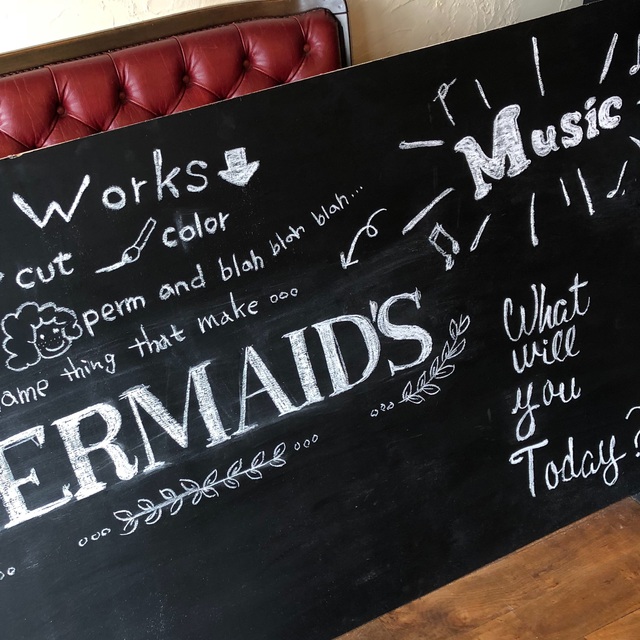 Works
cut color
perm and blah blah blah...
ame thing that make ...
ERMAID'S
Music
What
will
you
Today?